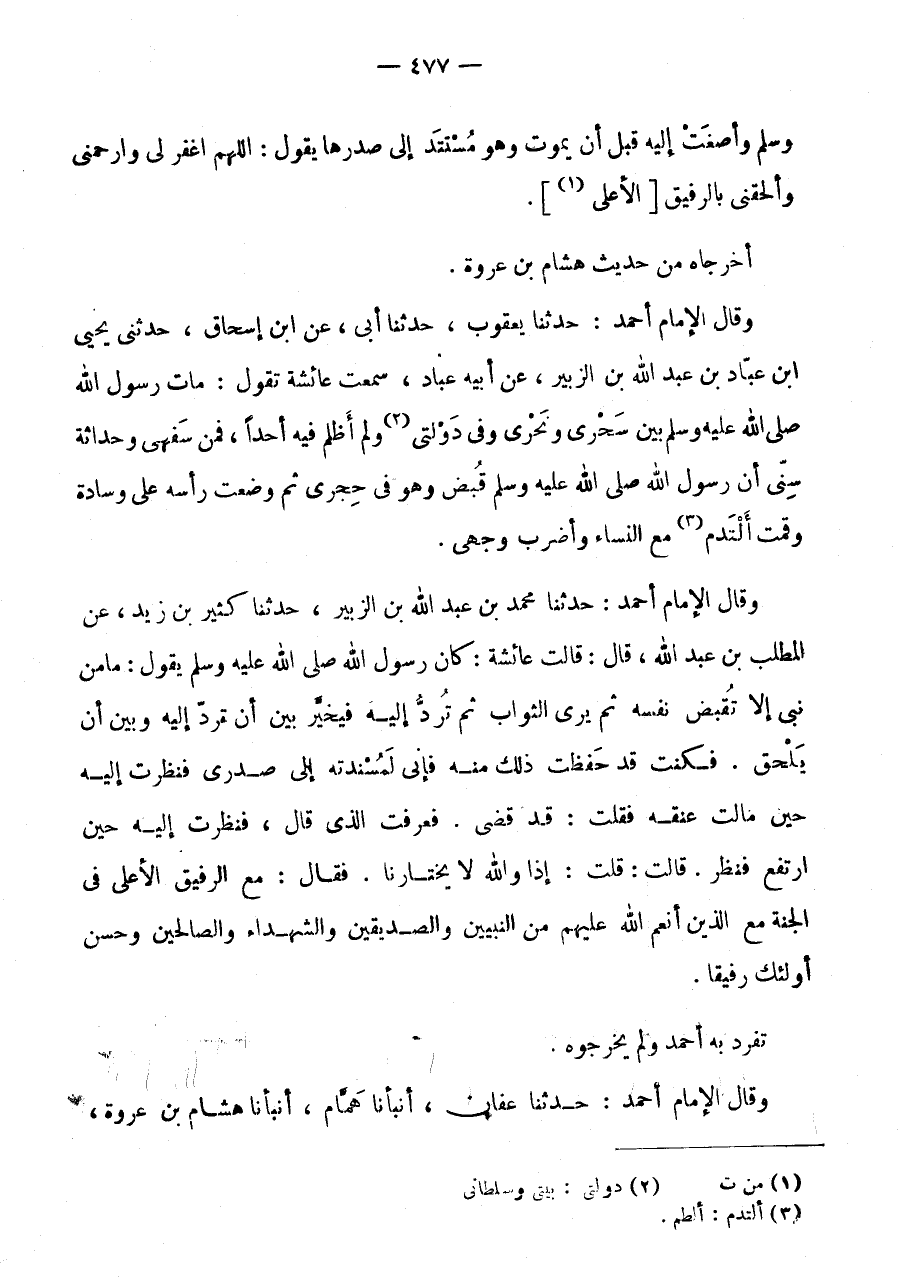 — ٤٧٧ —
وسلم وأصغَتْ إليه قبل أن يموت وهو مُسْتنَد إلى صدرها يقول : اللهم اغفر لى وارحمنى
وألحقنى بالرفيق [ الأعلى (١) ] .
أخرجاه من حديث هشام بن عروة .
وقال الإمام أحمد : حدثنا يعقوب ، حدثنا أبى ، عن ابن إسحاق ، حدثنى يحيى
ابن عبّاد بن عبد الله بن الزبير ، عن أبيه عباد ، سمعت عائشة تقول : مات رسول الله
صلى الله عليه وسلم بين سَحْرى ونَحْرى وفى دَوْلتى (٢) ولم أَظلم فيه أحداً ، فمن سَفهى وحداثة
سِنّى أن رسول الله صلى الله عليه وسلم قُبض وهو فى حِجرى ثم وضعت رأسه على وسادة
وقمت أَلْتَدم (٣) مع النساء وأضرب وجهى .
وقال الإمام أحمد : حدثنا محمد بن عبد الله بن الزبير ، حدثنا كثير بن زيد ، عن
المطلب بن عبد الله ، قال : قالت عائشة : كان رسول الله صلى الله عليه وسلم يقول : مامن
نبى إلا تُقبض نفسه ثم يرى الثواب ثم تُردُّ إليه فيخيَّر بين أن تردّ إليه وبين أن
يَلْحق . فكنت قد حَفظت ذلك منه فإنى لَمُسْندته إلى صدرى فنظرت إليه
حين مالت عنقه فقلت : قد قضى . فعرفت الذى قال ، فنظرت إليه حين
ارتفع فنظر . قالت : قلت : إذا والله لا يختارنا . فقال : مع الرفيق الأعلى فى
الجنة مع الذين أنعم الله عليهم من النبيين والصديقين والشهداء والصالحين وحسن
أولئك رفيقا .
تفرد به أحمد ولم يخرجوه .
وقال الإمام أحمد : حدثنا عفان ، أنبأنا هَمَّام ، أنبأنا هشام بن عروة ،
(١) من ت (٢) دولتى : بيتى وسلطانى
(٣) ألتدم : ألطم .